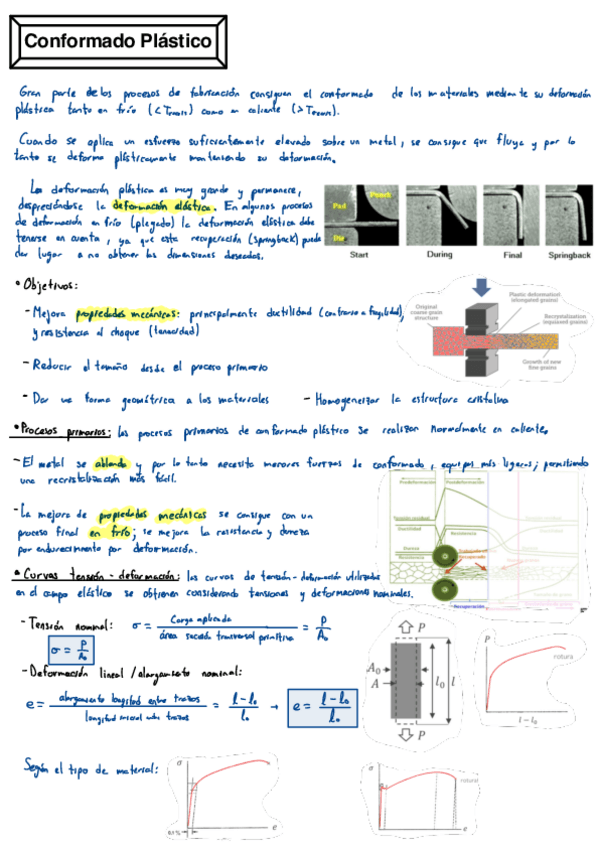 Conformado Plástico
Gran parte de los procesos de fabricación consiguen el conformado de los materiales mediante su deformación
plástica tanto en frío (< Trecris) como en caliente (> Trecris).
Cuando se aplica un esfuerzo suficientemente elevado sobre un metal, se consigue que fluya y por lo
tanto se deforma plásticamente manteniendo su deformación.
La deformación plástica es muy grande y permanece,
despreciándose la deformación elástica. En algunos procesos
de deformación en frío (plegado) la deformación elástica debe
tenerse en cuenta, ya que esta recuperación (springback) puede
dar lugar a no obtener las dimensiones deseadas.
Pad Punch
Die
Start During Final Springback
• Objetivos:
- Mejora propiedades mecánicas: principalmente ductilidad (contrario a fragilidad),
y resistencia al choque (tenacidad)
- Reducir el tamaño desde el proceso primario
- Dar una forma geométrica a los materiales - Homogeneizar la estructura cristalina
Original
coarse grain
structure
Plastic deformation
(elongated grains)
Recrystallization
(equiaxed grains)
Growth of new
fine grains
• Procesos primarios: los procesos primarios de conformado plástico se realizan normalmente en caliente.
- El metal se ablanda y por lo tanto necesita menores fuerzas de conformado, equipos más ligeros; permitiendo
una recristalización más fácil.
- La mejora de propiedades mecánicas se consigue con un
proceso final en frío; se mejora la resistencia y dureza
por endurecimiento por deformación.
Tensión residual
Ductilidad
Resistencia
Dureza
Recuperación
• Curvas tensión - deformación: las curvas de tensión-deformación utilizadas
en el campo elástico se obtienen considerando tensiones y deformaciones nominales.
- Tensión nominal: σ = Carga aplicada / área sección transversal primitiva = P / A₀
σ = P / A₀
- Deformación lineal / alargamiento nominal:
e = alargamiento longitud entre trazos / longitud inicial entre trazos = l - l₀ / l₀ → e = l - l₀ / l₀
P
A₀
A
l₀ l
P
P
rotura
l - l₀
Según el tipo de material:
σ
0,1 %
e
σ
rotura
e